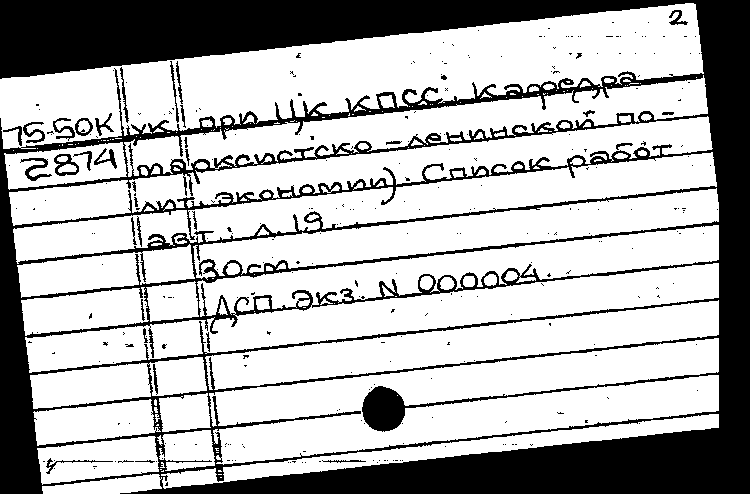 2
75-50К ук при ЦК КПСС. Кафедра
2874 марксистско-ленинской по-
лит. экономии). Список работ
авт.: л. 19.
30см.
ДСП. Экз. N 000004.